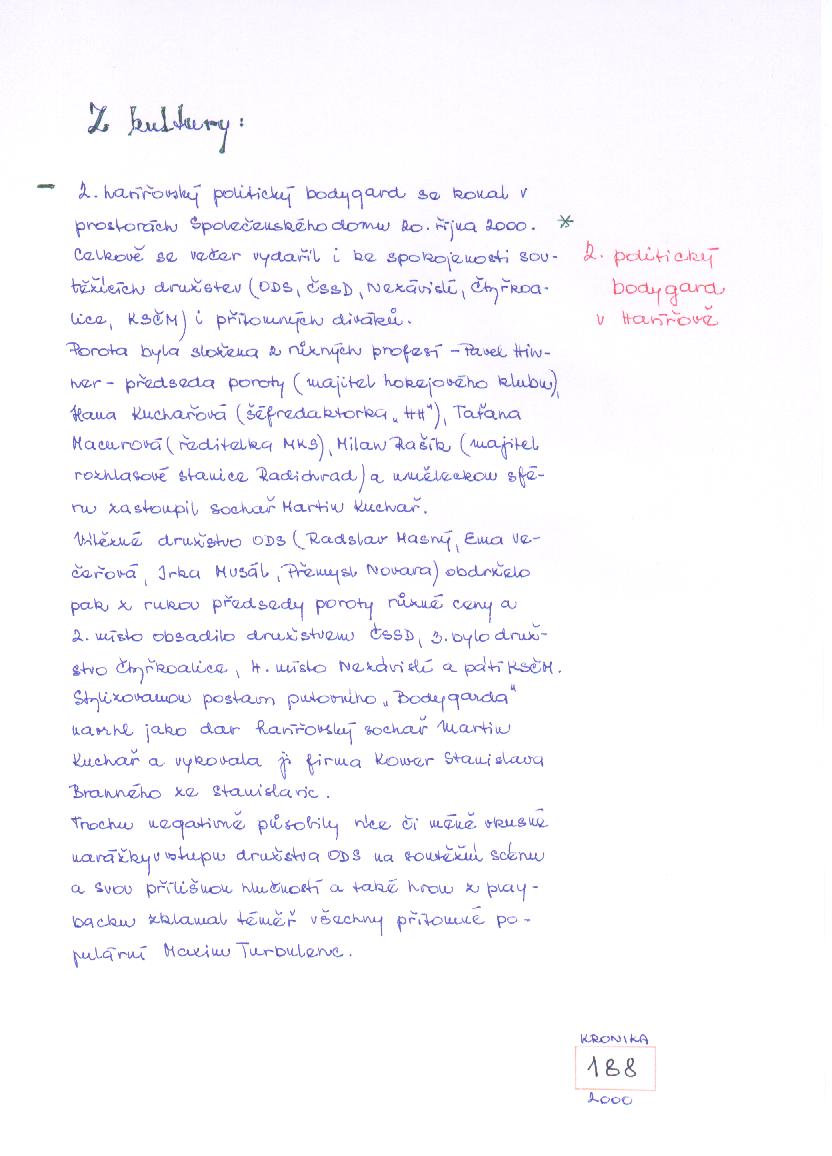 Z kultury:
- 2. havířovský politický bodygard se konal v
prostorách Společenského domu 20. října 2000. *
Celkově se večer vydařil i ke spokojenosti sou-
těžících družstev (ODS, ČSSD, Nezávislí, Čtyřkoa-
lice, KSČM) i přítomných diváků.
Porota byla složena z různých profesí - Pavel Hin-
ner - předseda poroty (majitel hokejového klubu),
Hana Kuchařová (šéfredaktorka „HH"), Taťana
Macurová (ředitelka MKS), Milan Rašík (majitel
rozhlasové stanice Radichrad) a uměleckou sfé-
ru zastoupil sochař Martin Kuchař.
Vítězné družstvo ODS (Radslav Masný, Ema Ve-
čeřová, Jirka Musál, Přemysl Novara) obdrželo
pak z rukou předsedy poroty různé ceny a
2. místo obsadilo družstvem ČSSD, 3. bylo druž-
stvo Čtyřkoalice, 4. místo Nezávislí a pátí KSČM.
Stylizovanou postavu putovního „Bodygarda"
navrhl jako dar havířovský sochař Martin
Kuchař a vykovala ji firma Kower Stanislava
Branného ze Stanislavic.
Trochu negativně působily více či méně vkusné
narážky v vstupu družstva ODS na soutěžní scénu
a svou přílišnou hlučností a také hrou z play-
backu zklamal téměř všechny přítomné po-
pulární Maxim Turbulenc.
2. politický
bodygard
v Havířově
KRONIKA
188
2000